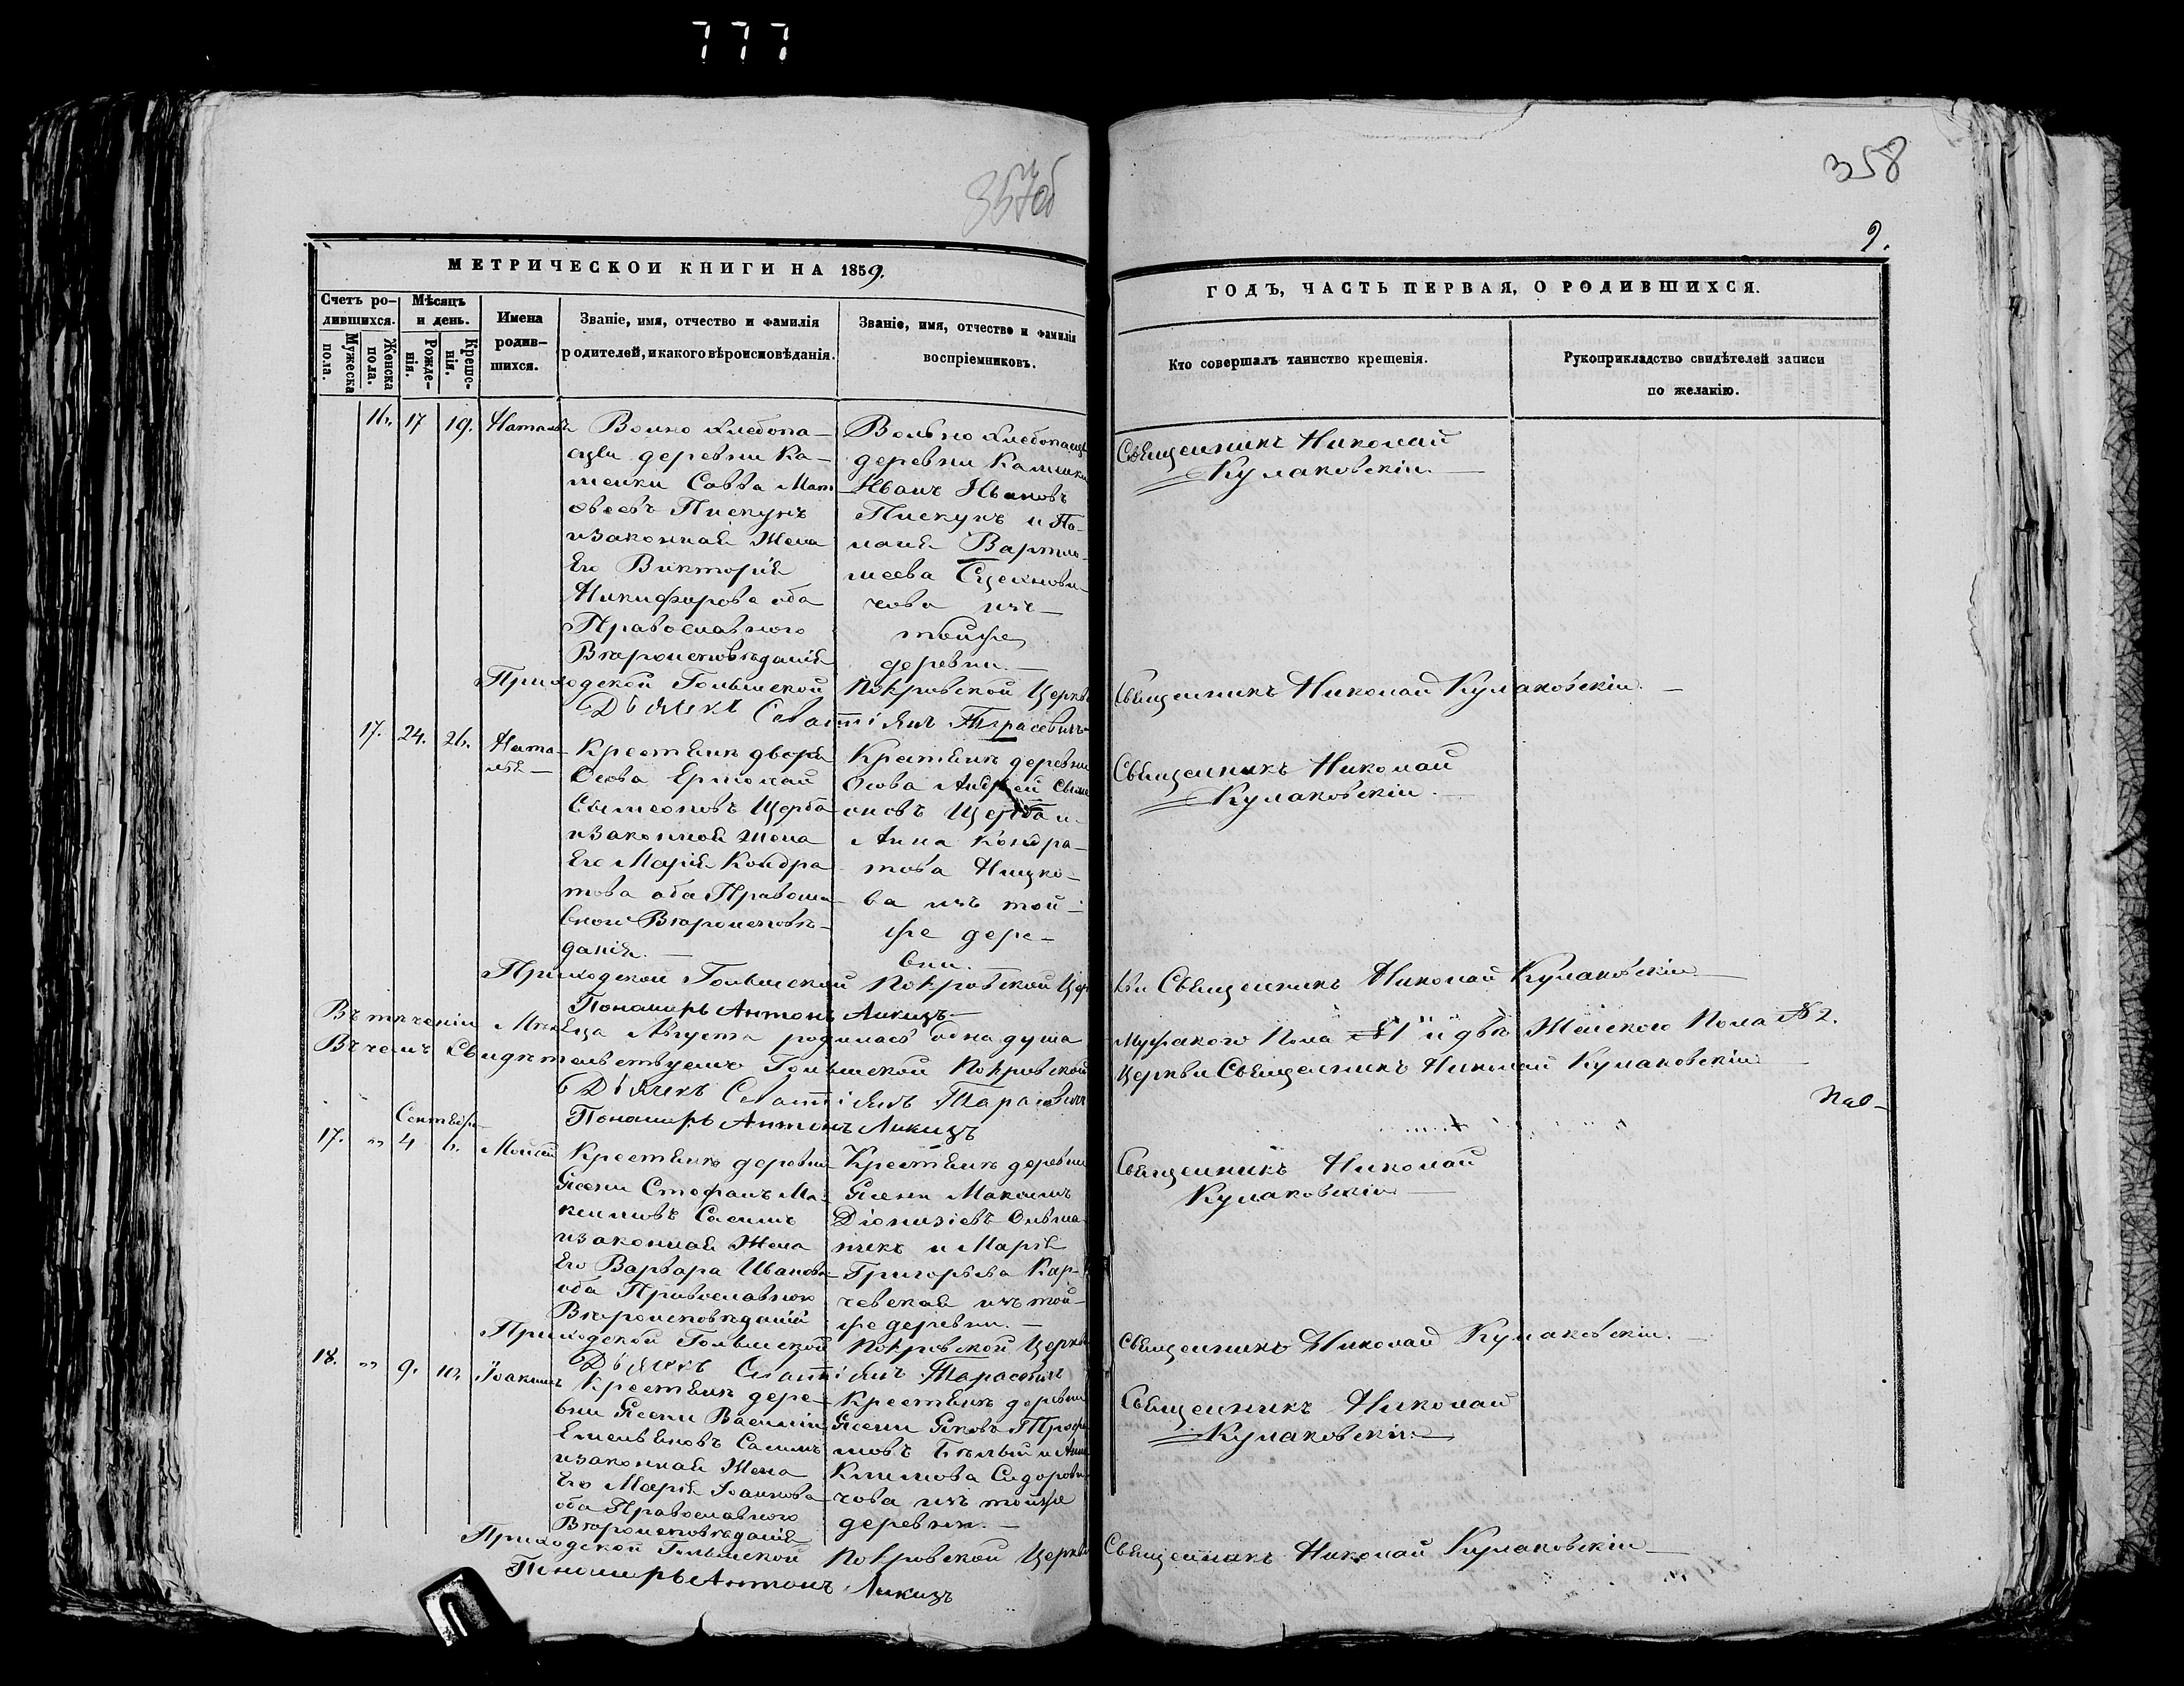 777
357об
358
9.
МЕТРИЧЕСКОЙ КНИГИ НА 1859.
ГОДЪ, ЧАСТЬ ПЕРВАЯ, О РОДИВШИХСЯ.
Счетъ ро-
дившихся.
Мужеска
пола.
Женска
пола.
Мѣсяцъ
и день.
Рожде-
нія.
Креще-
нія.
Имена
родив-
шихся.
Званіе, имя, отчество и фамилія
родителей, и какого вѣроисповѣданія.
Званіе, имя, отчество и фамилія
воспріемниковъ.
Кто совершалъ таинство крещенія.
Рукоприкладство свидѣтелей записи
по желанію.
16. 17 19. Наталія
Вольно хлебопа-
щцы деревни Ка-
менки Савва Мат
ѳеевъ Пискунъ
и законная Жена
Его Викторія
Никифорова оба
Православного
Вѣроисповѣданія
Вольно хлебопащцы
деревни Каменки
Иванъ Ивановъ
Пискунъ и По-
лонія Вартло-
меева
чова изъ
тойже
деревни.
Священникъ Николай
Кулаковскій.
Приходской Голынской Покровской Церкви Священникъ Николай Кулаковскій.
Дьячекъ Севастіянъ Тарасевичъ
17. 24. 26. Ната-
лія
Крестьянъ деревни
Осова Ермолай
Сымеоновъ Щерба
и законной жена
Его Марія Кондра
това оба Правосла-
вного Вѣроисповѣ-
данія.
Крестьянъ деревни
Осова Андрей Сыме
оновъ Щерба и
Анна Кондра-
това Ницко-
ва изъ той-
же дере-
вни.
Священникъ Николай
Кулаковскій.
Приходской Голынской Покровской Церкви Священникъ Николай Кулаковскій
Пономарь Антонъ Ликизъ
Въ теченіи Мѣсяца Августа родилась одна душа Мужского Пола №1 и двѣ Женского Пола №2.
Въ чемъ Свидѣтельствуемъ Голынской Покровской Церкви Священникъ Николай Кулаковскій
Дьячекъ Севастіянъ Тарасевичъ
Пономарь Антонъ Ликизъ
Сентября
17. " 4 6. Мойсей
Крестьянъ деревни
Ясени Стефанъ Ма-
ксимовъ Саенигъ
и законная Жена
Его Варвара Иванова
оба Православного
Вѣроисповѣданій
Крестьянъ деревни
Ясени Максимъ
Діонизіевъ Ольша-
никъ и Марія
Григорьева Кар-
чевская изъ той-
же деревни.
Священникъ Николай
Кулаковскій
Приходской Голынской Покровской Церкви Священникъ Николай Кулаковскій.
Дьячекъ Севастіянъ Тарасевичъ
18. " 9. 10. Іоакимъ
Крестьянъ дере-
вни Ясени Василій
Емельяновъ
и законная Жена
Его Марія Іоакимова
оба Православного
Вѣроисповѣданія
Крестьянъ деревни
Ясени Яковъ Трофи
мовъ Бѣлый и Анна
Климова Сидорови-
чова изъ тойже
деревни.
Священникъ Николай
Кулаковскій
Приходской Голынской Покровской Церкви Священникъ Николай Кулаковскій
Пономарь Антонъ Ликизъ